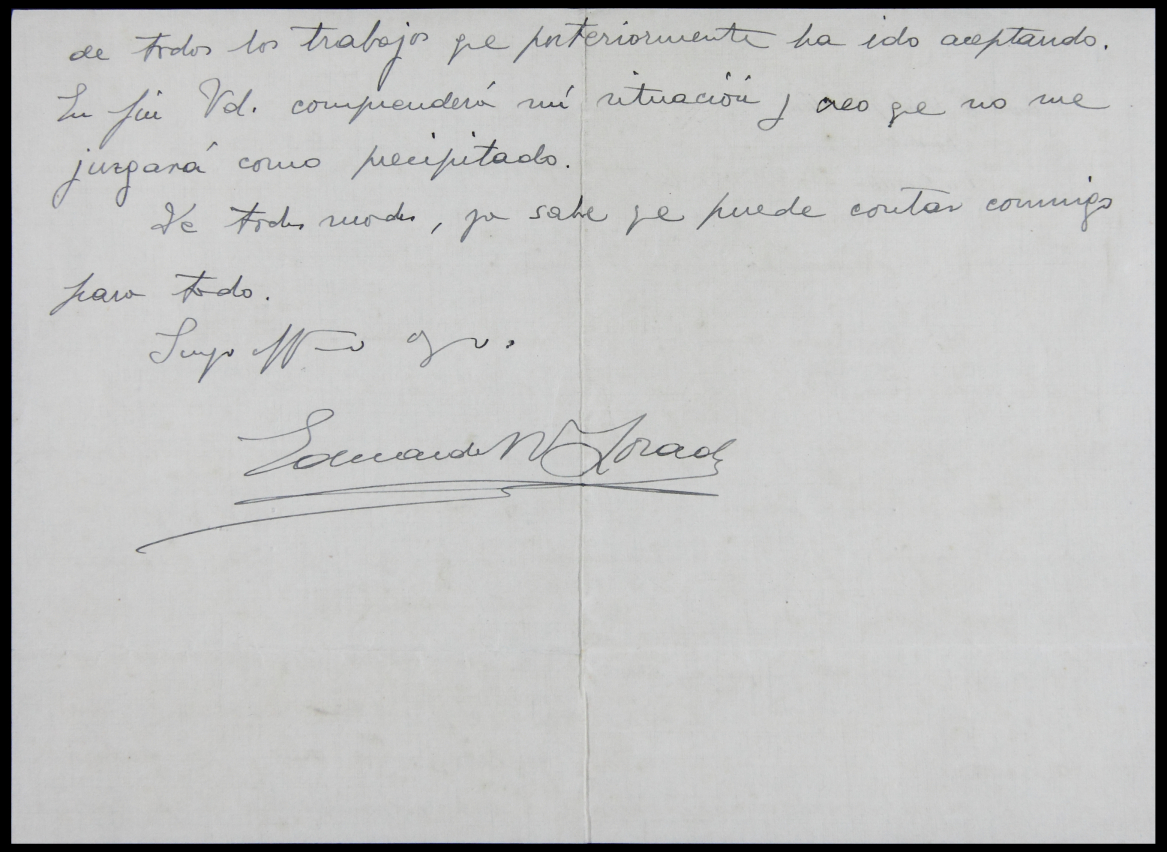 de todos los trabajos qe posteriormente ha ido aceptando.
En fin Vd. comprenderá mi situación y creo qe no me
juzgará como precipitado.
De todos modos, ya sabe qe puede contar conmigo
para todo.
Suyo affmo
Eduardo M. Torado